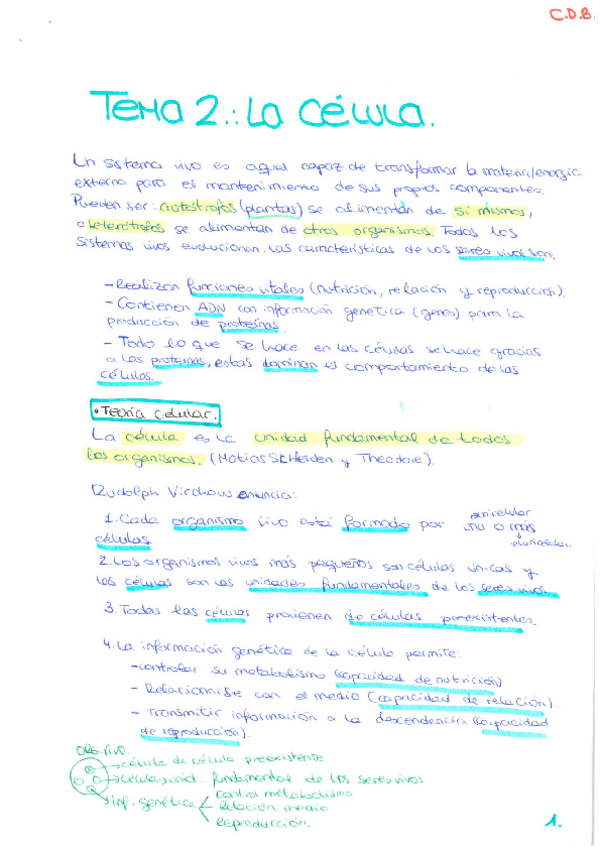 C.D.B.
TEMA 2.: LA CÉLULA.
Un sistema vivo es aquel capaz de transformar la materia/energía
externa para el mantenimiento de sus propios componentes.
Pueden ser: autótrofos (plantas) se alimentan de sí mismos,
o heterótrofos se alimentan de otros organismos. Todos los
sistemas vivos evolucionan. Las características de los seres vivos son:
- Realizan funciones vitales (nutrición, relación y reproducción).
- Contienen ADN con información genética (genes) para la
producción de proteínas.
- Todo lo que se hace en las células se hace gracias
a las proteínas, estas dominan el comportamiento de las
células.
• Teoría celular.
La célula es la unidad fundamental de todos
los organismos. (Matias Schleiden y Theodore).
Rudolph Virchow enuncia:
unicelular
1. Cada organismo vivo está formado por una o más
células pluricelular.
2. Los organismos vivos más pequeños son células únicas y
las células son las unidades fundamentales de los seres vivos.
3. Todas las células provienen de células preexistentes.
4. La información genética de la célula permite:
- controlar su metabolismo (capacidad de nutrición)
- Relacionarse con el medio (capacidad de relación).
- Transmitir información a la descendencia (capacidad
de reproducción).
Org. vivo.
célula de célula preexistente
células unid. fundamental de los seres vivos
inf. genética control metabolismo
Relación medio
Reproducción.
1.